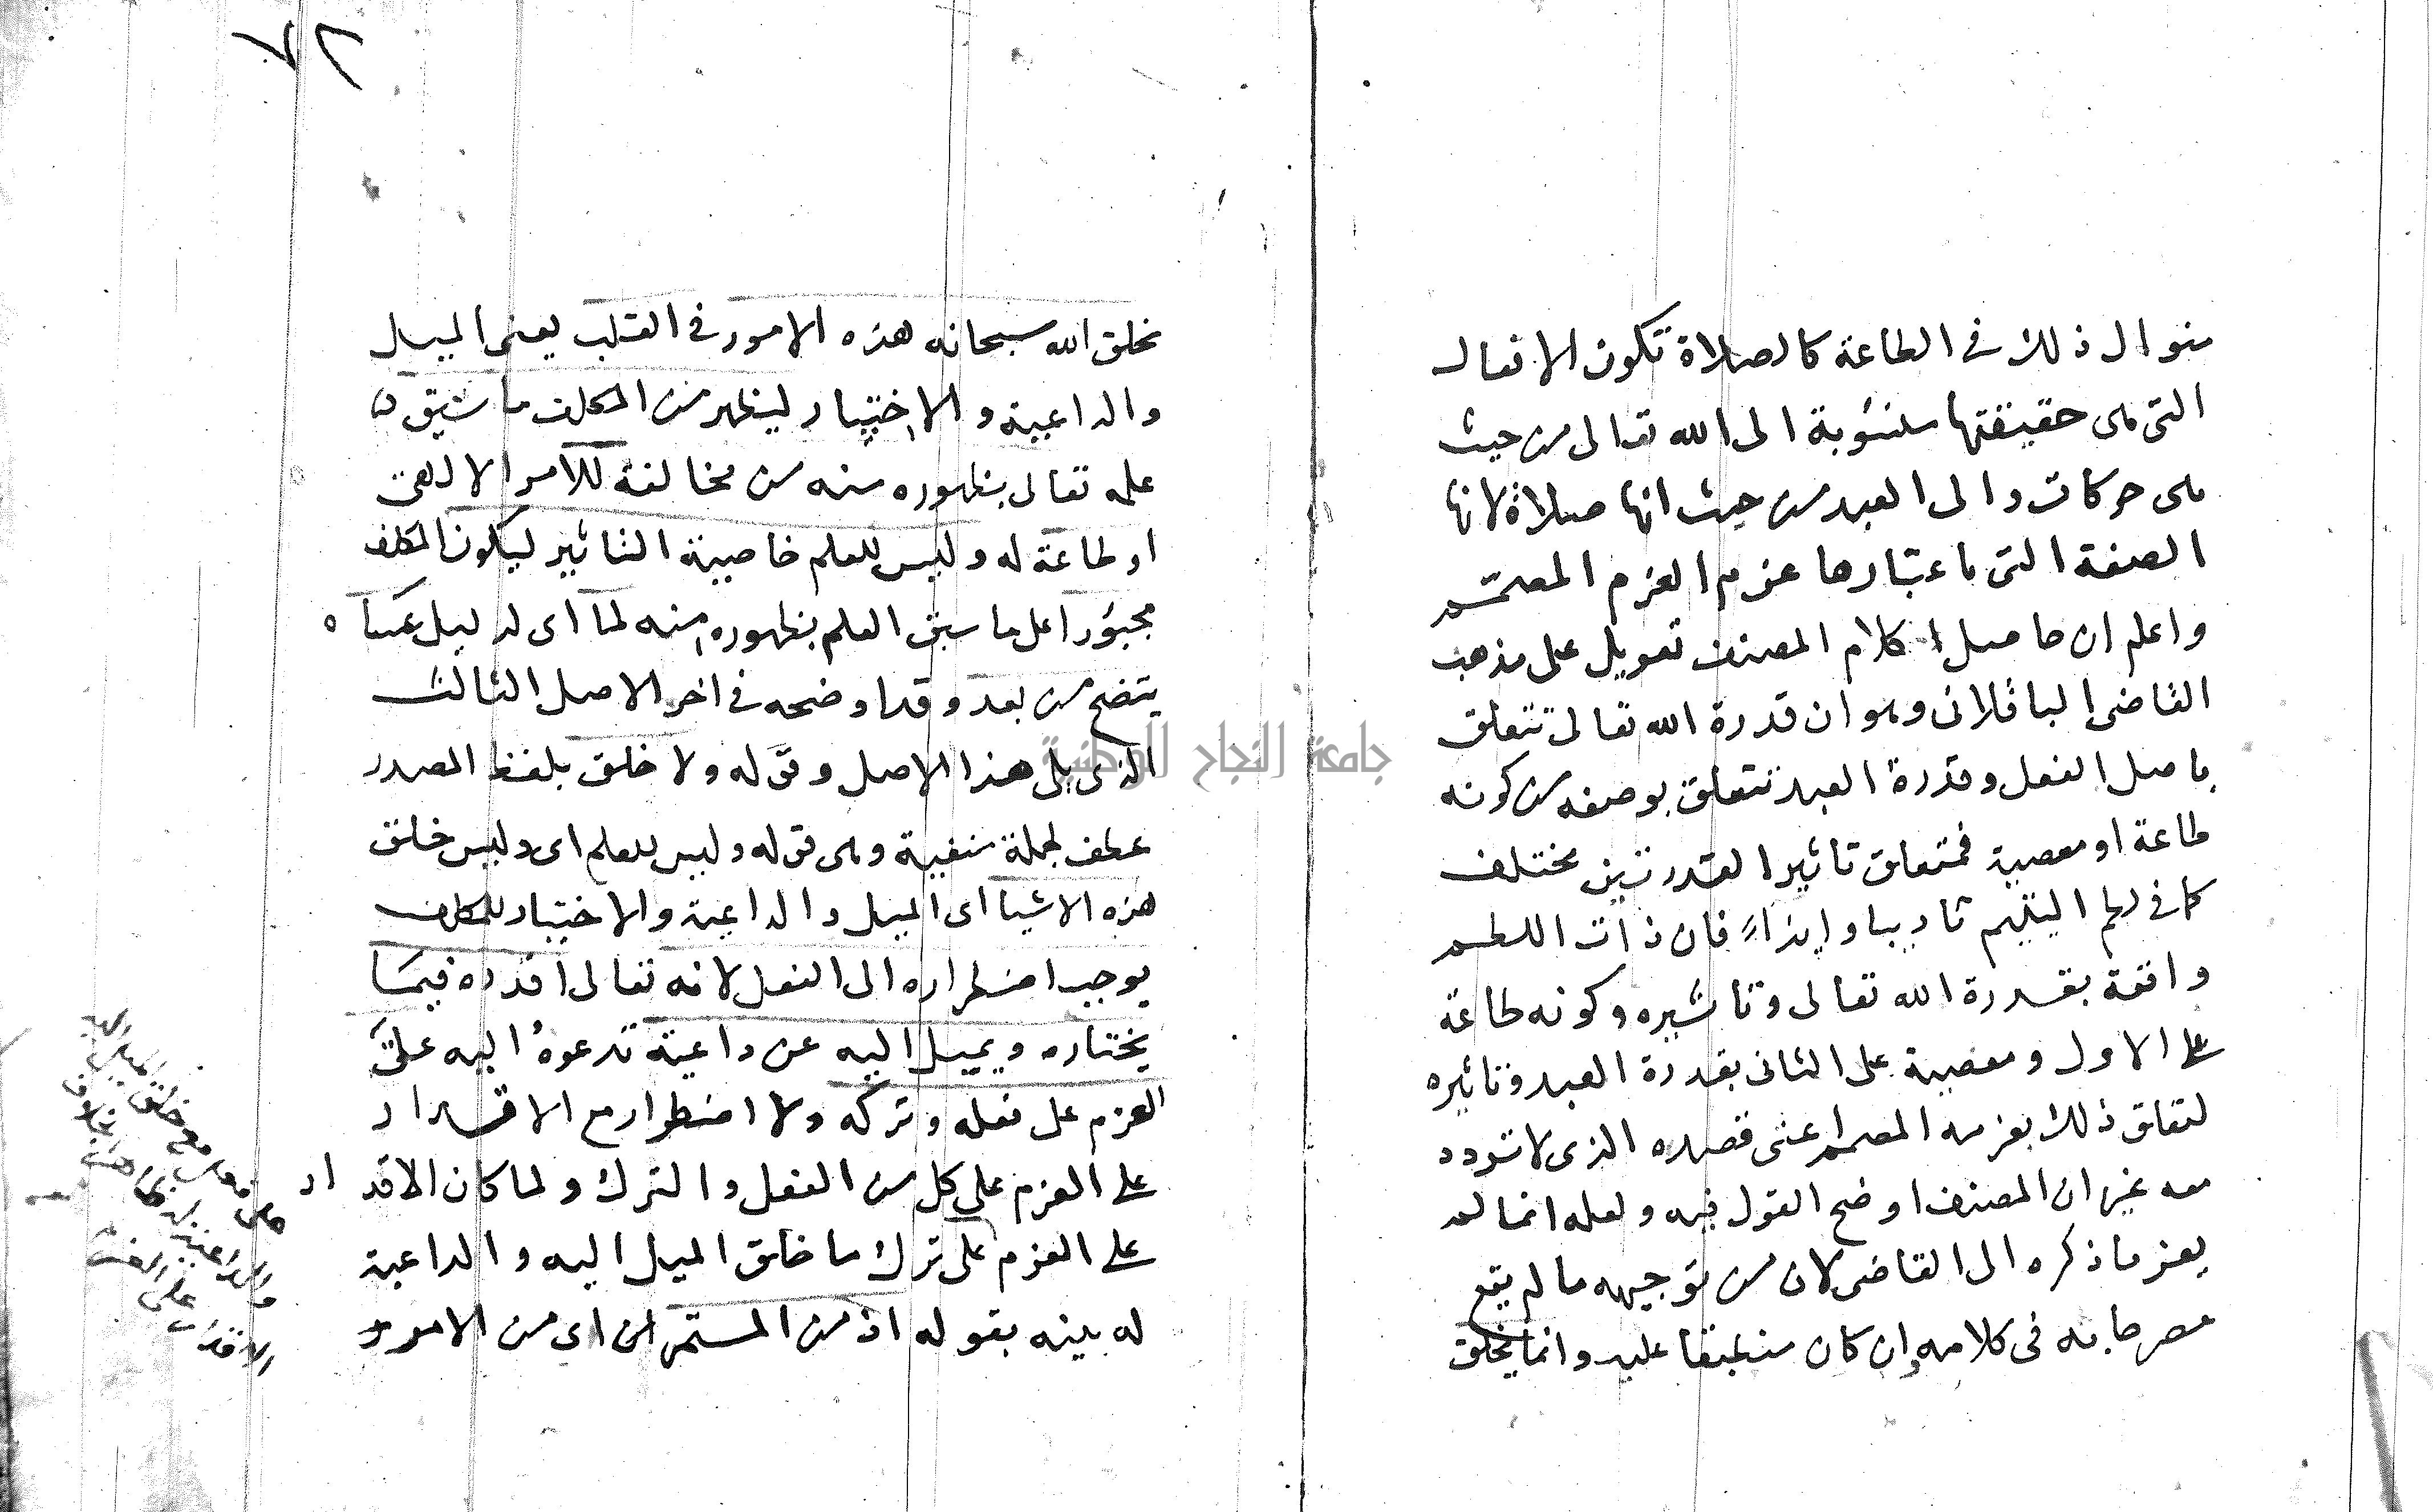 منوال ذلك في الطاعة كالصلاة تكون الافعال
التي هي حقيقتها منسوبة الى الله تعالى من حيث
هي حركات والى العبد من حيث انها صلاة لانها
الصفة التي باعتبارها عزم العزم المصمم
واعلم ان حاصل كلام المصنف تعويل على مذهب
القاضي الباقلاني وهو ان قدرة الله تعالى تتعلق
باصل الفعل وقدرة العبد تتعلق بوصفه من كونه
طاعة او معصية فمتعلق تاثير القدرتين مختلف
كما في لطم اليتيم تاديبا وايذاء فان ذات اللطم
واقعة بقدرة الله تعالى وتاثيره وكونه طاعة
على الاول ومعصية على الثاني بقدرة العبد وتاثيره
لتعلق ذلك بعزمه المصمم اعني قصده الذي لا تردد
معه غير ان المصنف اوضح القول فيه ولعله انما لم
يعز ما ذكره الى القاضي لان من توجيهه ما لم يقع
مصرحا به في كلامه وان كان منطبقا عليه وانما يخلق
٧٢
يخلق الله سبحانه هذه الامور في القلب يعني الميل
والداعية والاختيار ليظهر من المكلف ما سبق
علمه تعالى بظهوره منه من مخالفة للامر الالهي
او طاعة له وليس للعلم خاصية التاثير ليكون المكلف
مجبورا على ما سبق العلم بظهوره منه لما اي لدليل
يتضح من بعد وقد اوضحه في اخر الاصل الثالث
الذي يلي هذا الاصل وقوله ولا خلق بلفظ المصدر
عطف لجملة منفية وهي قوله وليس للعلم اي وليس خلق
هذه الاشيا اي الميل والداعية والاختيار للمكلف
يوجب اضطراره الى الفعل لانه تعالى اقدره فيما
يختاره ويميل اليه عن داعية تدعوه اليه على
العزم على فعله وتركه ولا اضطرار مع الاقدار
على العزم على كل من الفعل والترك ولما كان الاقدار
على العزم على ترك ما خلق الميل اليه والداعية
له بينه بقوله اذ من المستمر اي من الامور
جامعة النجاح الوطنية